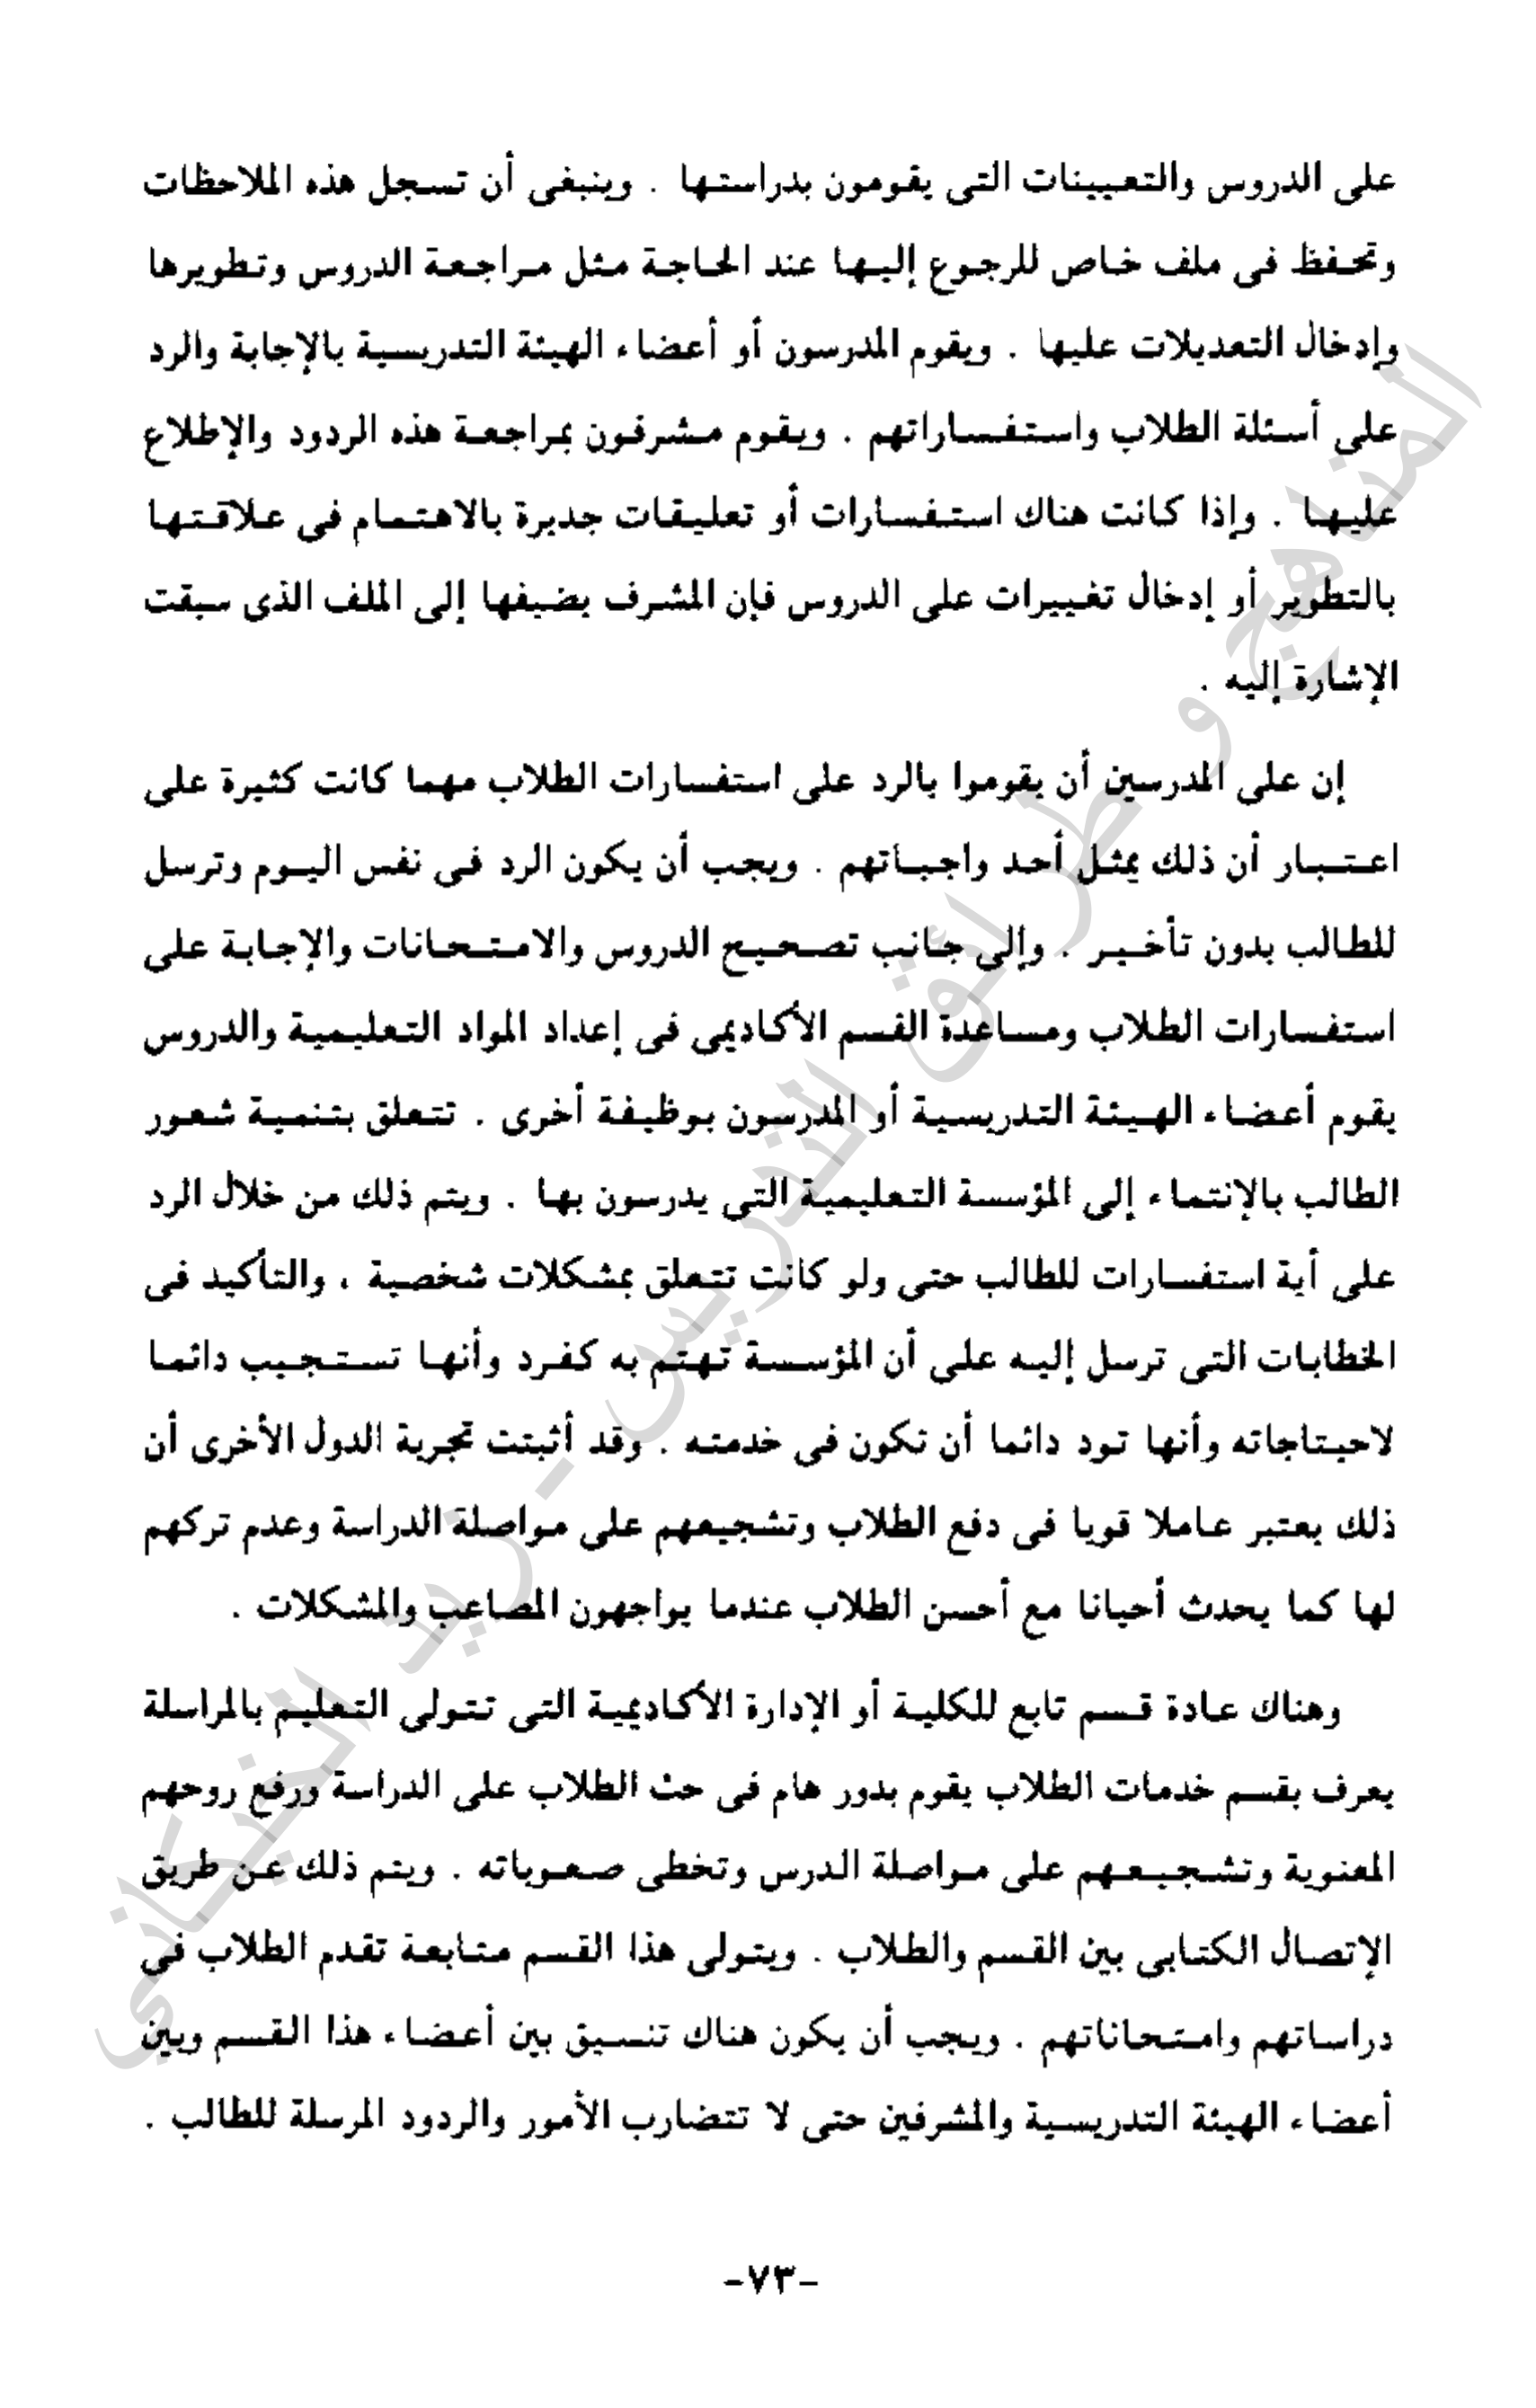 على الدروس والتعيينات التى يقومون بدراستها . وينبغى أن تسجل هذه الملاحظات
وتحفظ فى ملف خاص للرجوع إليها عند الحاجة مثل مراجعة الدروس وتطويرها
وإدخال التعديلات عليها . ويقوم المدرسون أو أعضاء الهيئة التدريسية بالإجابة والرد
على أسئلة الطلاب واستفساراتهم . ويقوم مشرفون بمراجعة هذه الردود والإطلاع
عليها . وإذا كانت هناك استفسارات أو تعليقات جديرة بالاهتمام فى علاقتها
بالتطوير أو إدخال تغييرات على الدروس فإن المشرف يضيفها إلى الملف الذى سبقت
الإشارة إليه .
إن على المدرسين أن يقوموا بالرد على استفسارات الطلاب مهما كانت كثيرة على
اعتبار أن ذلك يمثل أحد واجباتهم . ويجب أن يكون الرد فى نفس اليوم وترسل
للطالب بدون تأخير . وإلى جانب تصحيح الدروس والامتحانات والإجابة على
استفسارات الطلاب ومساعدة القسم الأكاديمى فى إعداد المواد التعليمية والدروس
يقوم أعضاء الهيئة التدريسية أو المدرسون بوظيفة أخرى . تتعلق بتنمية شعور
الطالب بالإنتماء إلى المؤسسة التعليمية التى يدرسون بها . ويتم ذلك من خلال الرد
على أية استفسارات للطالب حتى ولو كانت تتعلق بمشكلات شخصية ، والتأكيد فى
الخطابات التى ترسل إليه على أن المؤسسة تهتم به كفرد وأنها تستجيب دائما
لاحيتاجاته وأنها تود دائما أن تكون فى خدمته . وقد أثبتت تجربة الدول الأخرى أن
ذلك يعتبر عاملا قويا فى دفع الطلاب وتشجيعهم على مواصلة الدراسة وعدم تركهم
لها كما يحدث أحيانا مع أحسن الطلاب عندما يواجهون المصاعب والمشكلات .
وهناك عادة قسم تابع للكلية أو الإدارة الأكاديمية التى تتولى التعليم بالمراسلة
يعرف بقسم خدمات الطلاب يقوم بدور هام فى حث الطلاب على الدراسة ورفع روحهم
المعنوية وتشجيعهم على مواصلة الدرس وتخطى صعوباته . ويتم ذلك عن طريق
الإتصال الكتابى بين القسم والطلاب . ويتولى هذا القسم متابعة تقدم الطلاب فى
دراساتهم وامتحاناتهم . ويجب أن يكون هناك تنسيق بين أعضاء هذا القسم وبين
أعضاء الهيئة التدريسية والمشرفين حتى لا تتضارب الأمور والردود المرسلة للطالب .
-٧٣-
المناهج و طرائق التدريس - زيد الخيكاني